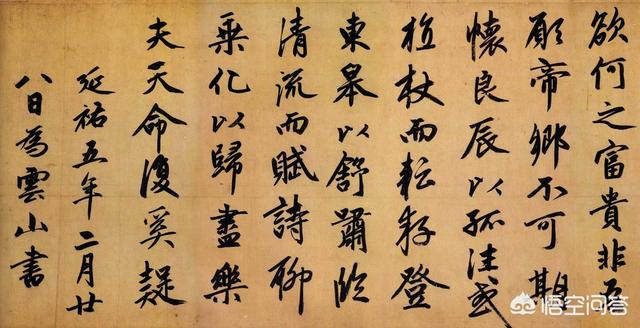 欲何之富貴非吾
願帝鄉不可期
懷良辰以孤往或
植杖而耘耔登
東皋以舒嘯臨
清流而賦詩聊
乗化以歸盡樂
夫天命復奚疑
延祐五年二月廿
八日為雲山書
悟空问答